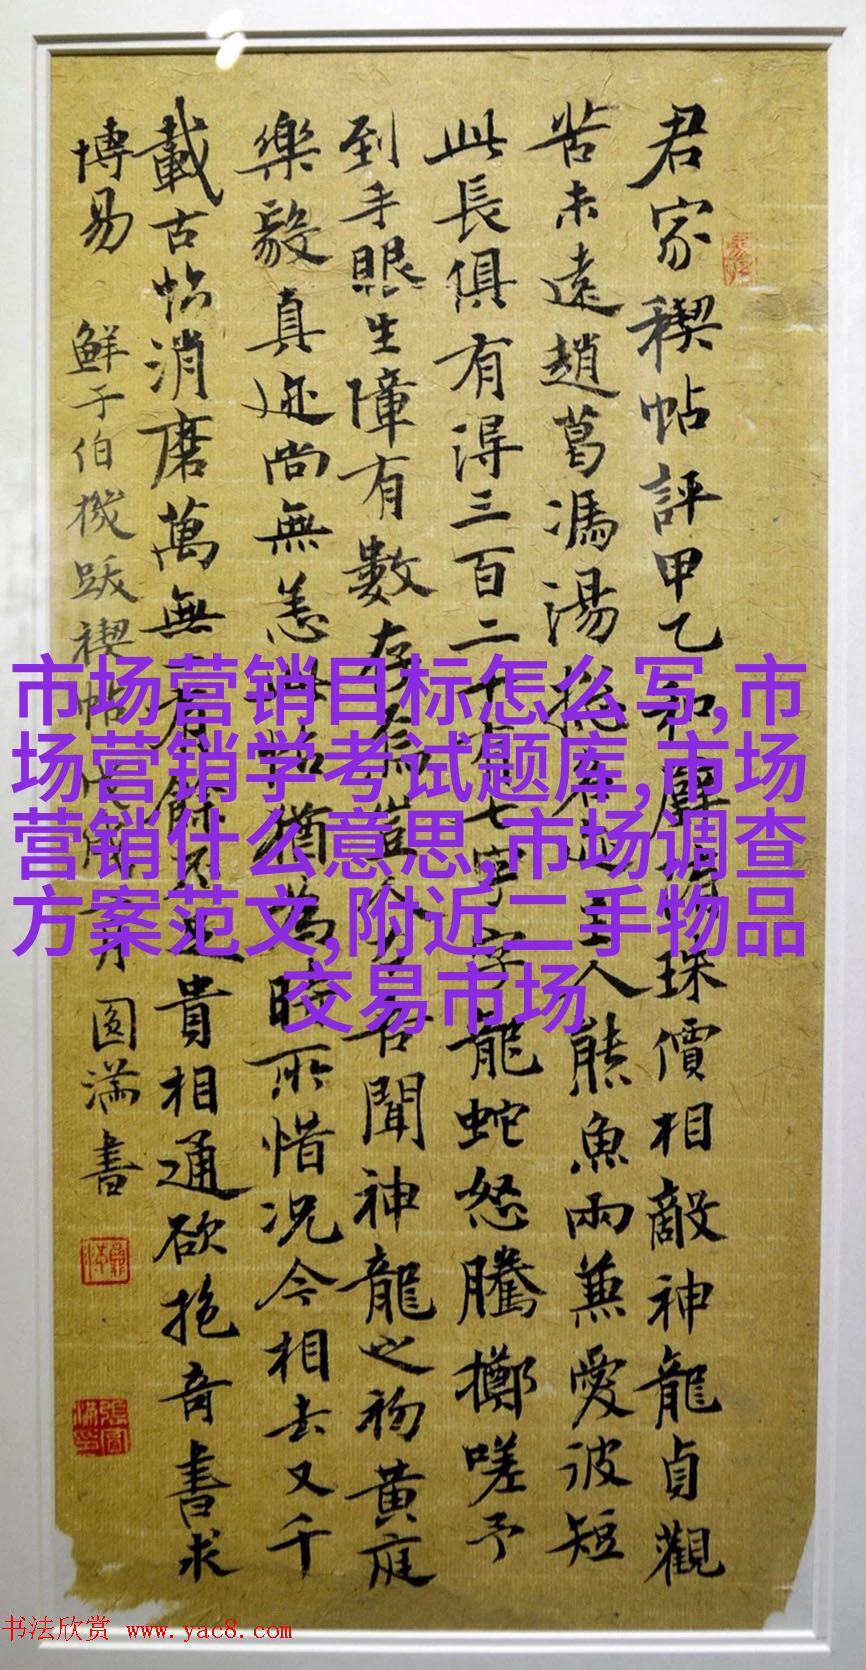 君家稧帖評甲乙和璧隋珠價相敵神龍貞觀
苦未遠趙葛馮湯揔名迹主人熊魚兩兼愛彼短
此長俱有得三百二十有七字字字龍蛇怒騰擲嗟予
到手眼生障有數存焉豈人力吾聞神龍之初黃庭
樂毅真迹尚無恙此帖猶為時所惜况今相去又千
載古帖消磨萬無一有餘不足貴相通欲抱奇書求
博易
鮮于伯機跋禊帖
圓滿書
市场营销目标怎么写,市
场营销学考试题库,市场
营销什么意思,市场调查
方案范文,附近二手物品
交易市场
书法欣赏 www.yac8.com